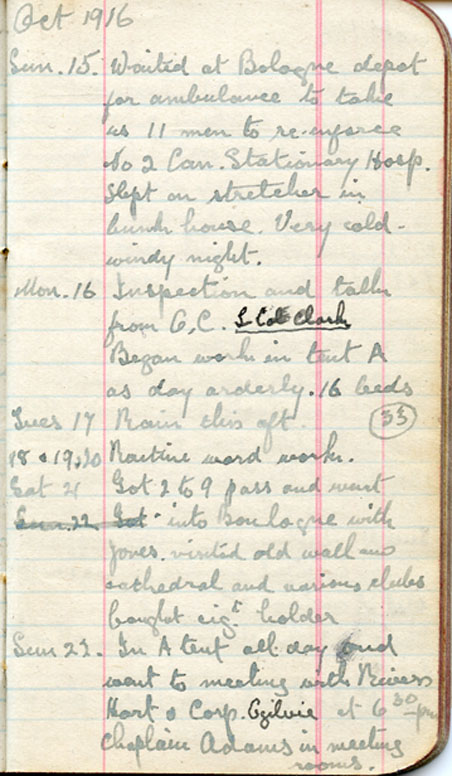 Oct 1916
Sun. 15. Waited at Bologne depot
for ambulance to take
us 11 men to re-enforce
No 2 Can. Stationary Hosp.
Slept on stretcher in
bunk house. Very cold -
windy night.
Mon. 16 Inspection and talk
from O.C. Lt Col Clark
Began work in tent A
as day orderly. 16 beds
Tues 17 Rain this aft. 33
18 & 19, 20 Routine ward work.
Sat 21 Got 2 to 9 pass and went
Sun. 22 Got into Boulogne with
Jones. visited old wall and
cathedral and various clubs
bought cigt holder
Sun 22. In A tent all day and
went to meeting with Rivers
Hart & Corp. Ogilvie at 6 30 pm
Chaplain Adams in meeting
rooms.